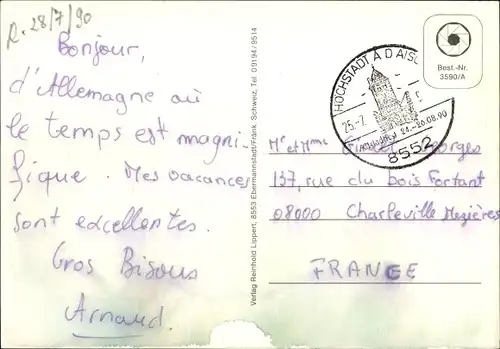 R. 28/7/90
Bonjour,
d'Allemagne où
le temps est magni-
fique. Mes vacances
sont excellentes.
Gros Bisous
Arnaud.
Verlag Reinhold Lippert, 8553 Ebermannstadt/Fränk. Schweiz, Tel. 09194/9514
Best.-Nr.
3590/A
HÖCHSTADT A D AISCH
25.-7.
24.-26.08.90
8552
Mr et Mme Georges
137, rue du bois Fortant
08000 Charleville Mezières
FRANCE